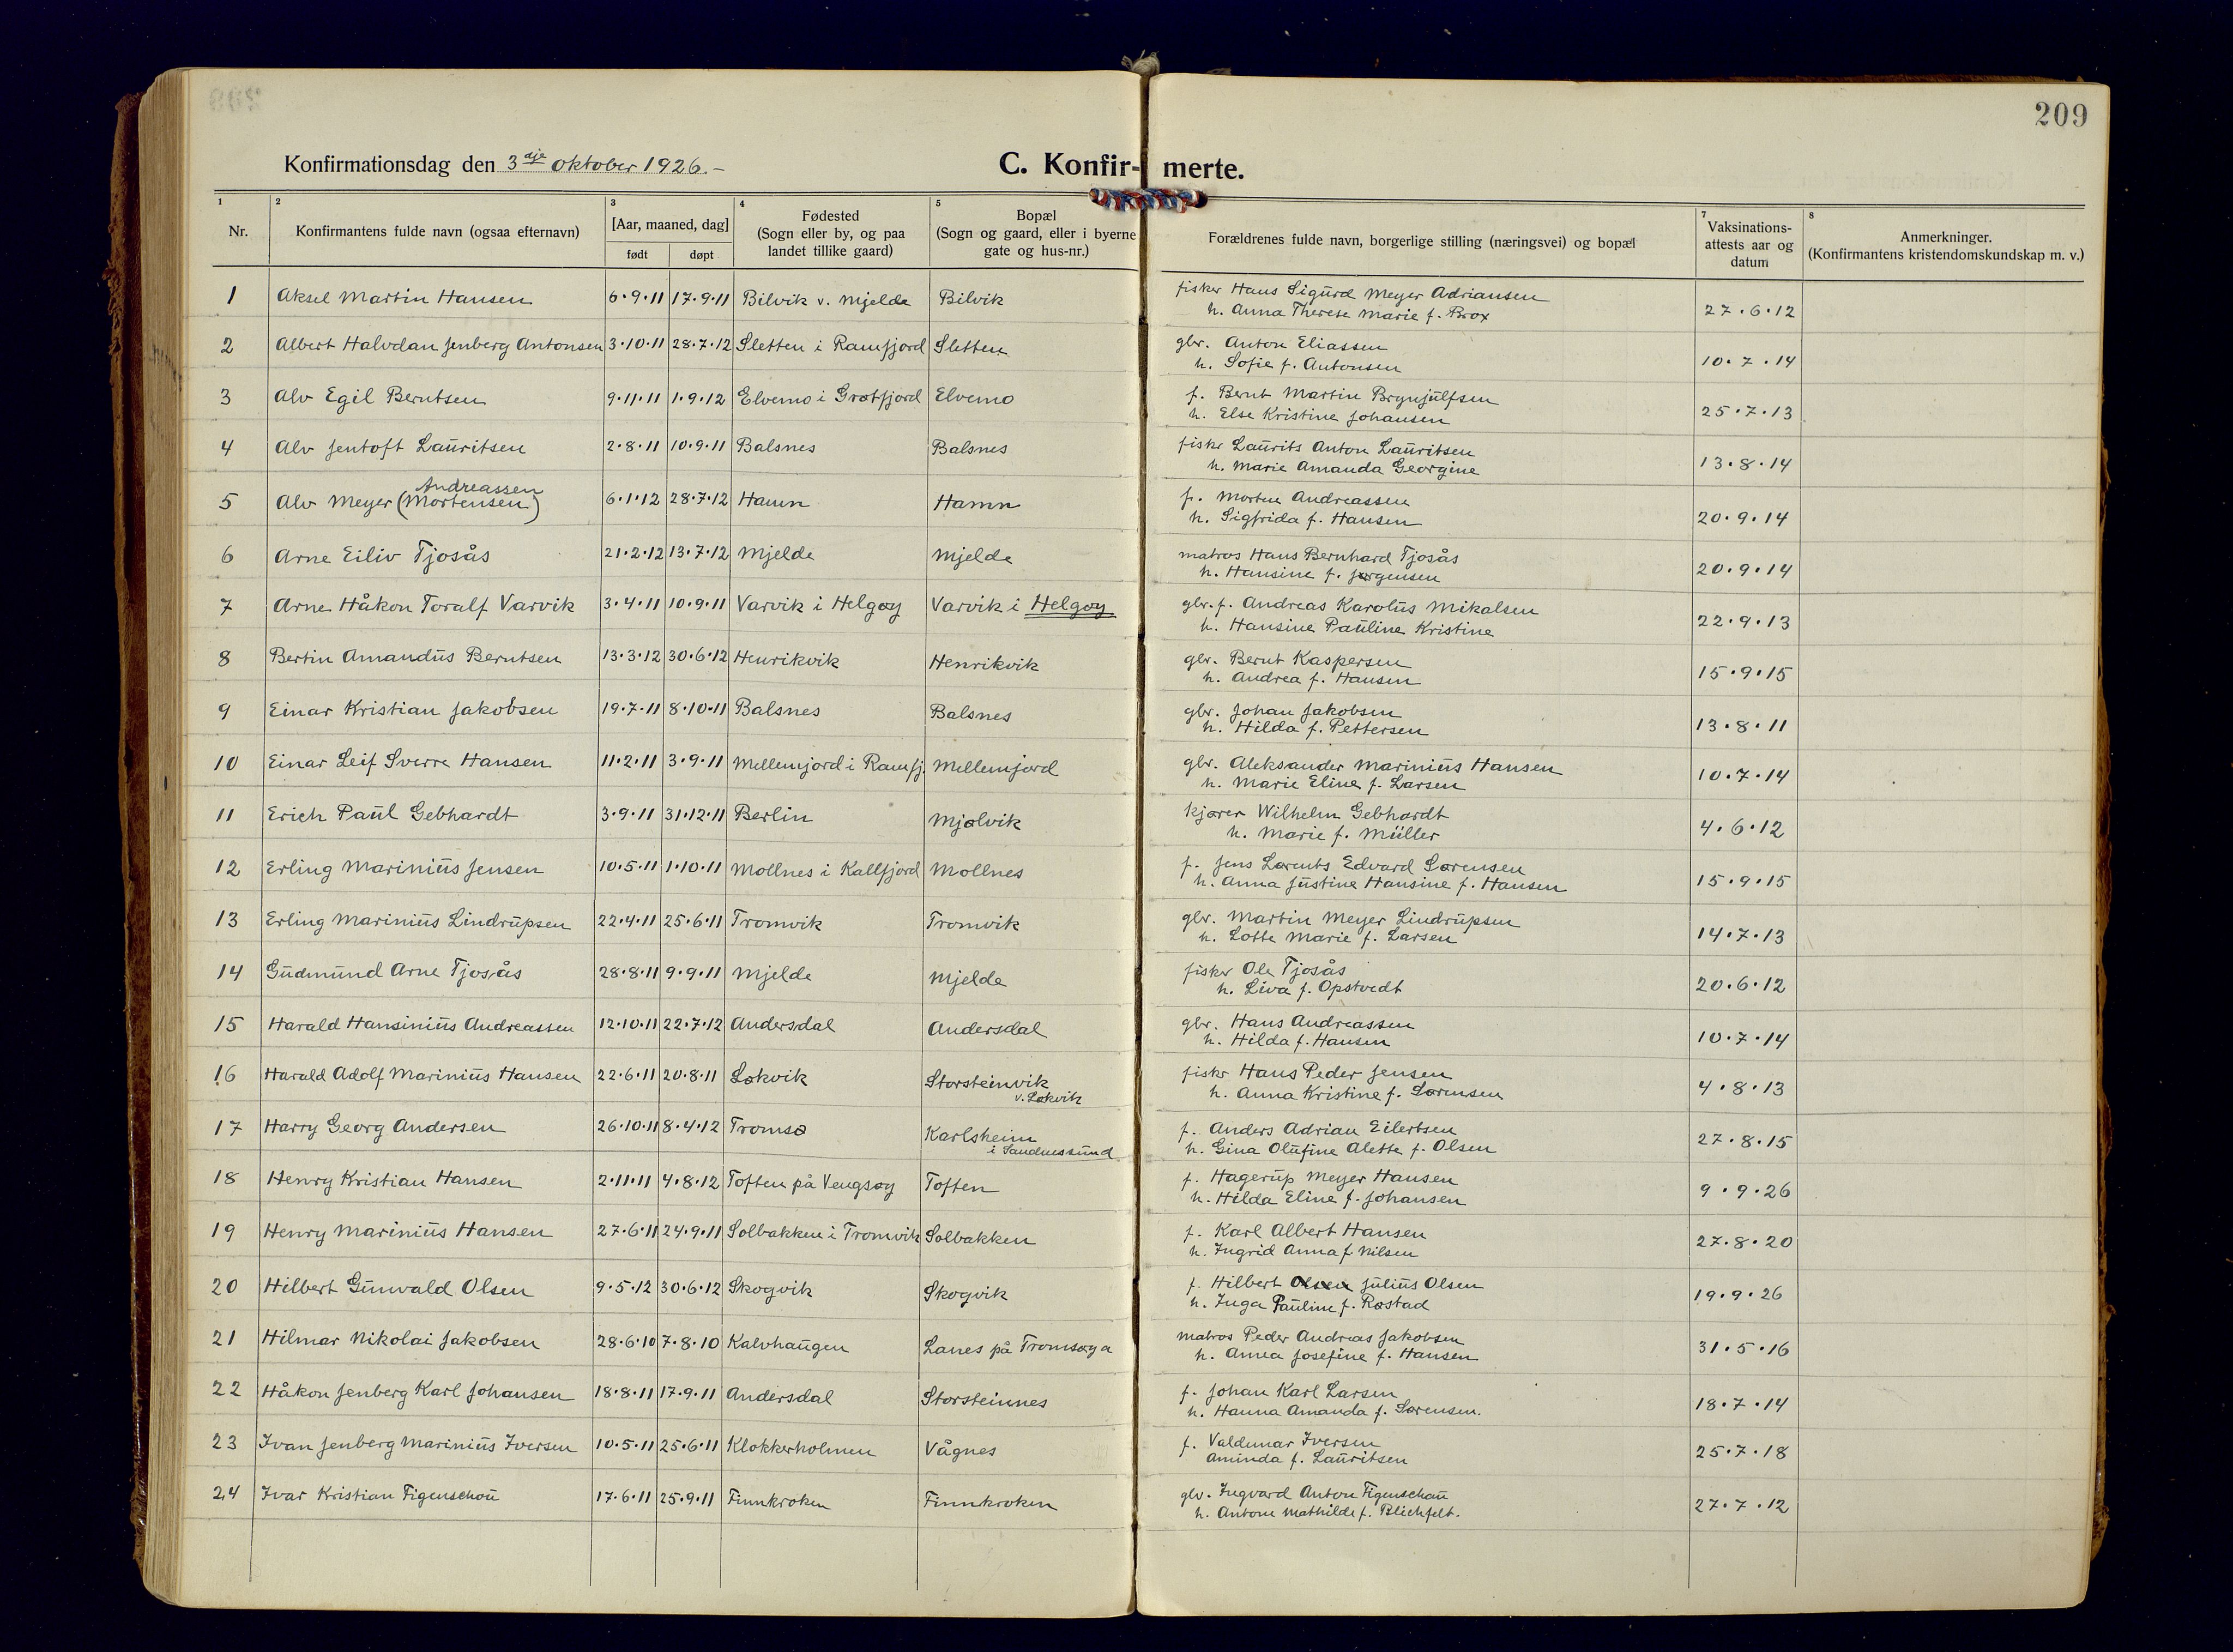 209
Konfirmationsdag den 3dje oktober 1926.-
C. Konfir- merte.
1 2 3 4 5 7 8
Nr.
Konfirmantens fulde navn (ogsaa efternavn)
[Aar, maaned, dag]
født døpt
Fødested
(Sogn eller by, og paa
landet tillike gaard)
Bopæl
(Sogn og gaard, eller i byerne
gate og hus-nr.)
Forældrenes fulde navn, borgerlige stilling (næringsvei) og bopæl
Vaksinations-
attests aar og
datum
Anmerkninger.
(Konfirmantens kristendomskundskap m. v.)
1 Aksel Martin Hansen 6.9.11 17.9.11 Bilvik v. Mjelde Bilvik fisker Hans Sigurd Meyer Adriansen
h. Anna Therese Marie f. Brox 27.6.12
2 Albert Halvdan Jenberg Antonsen 3.10.11 28.7.12 Sletten i Ramfjord Sletten gbr. Anton Eliassen
h. Sofie f. Antonsen 10.7.14
3 Alv Egil Berntsen 9.11.11 1.9.12 Elvemo i Grøtfjord Elvemo f. Bernt Martin Brynjulfsen
h. Else Kristine Johansen 25.7.13
4 Alv Jentoft Lauritsen 2.8.11 10.9.11 Balsnes Balsnes fiskr Laurits Anton Lauritsen
h. Marie Amanda Georgine 13.8.14
Andreassen
5 Alv Meyer (Mortensen) 6.1.12 28.7.12 Hamn Hamn f. Morten Andreassen
h. Sigfrida f. Hansen 20.9.14
6 Arne Eiliv Tjosås 21.2.12 13.7.12 Mjelde Mjelde matros Hans Bernhard Tjosås
h. Hansine f. Jørgensen 20.9.14
7 Arne Håkon Toralf Varvik 3.4.11 10.9.11 Varvik i Helgøy Varvik i Helgøy gbr. f. Andreas Karolus Mikalsen
h. Hansine Pauline Kristine 22.9.13
8 Bertin Amandus Berntsen 13.3.12 30.6.12 Henrikvik Henrikvik gbr. Bernt Kaspersen
h. Andrea f. Hansen 15.9.15
9 Einar Kristian Jakobsen 19.7.11 8.10.11 Balsnes Balsnes gbr. Johan Jakobsen
h. Hilda f. Pettersen 13.8.11
10 Einar Leif Sverre Hansen 11.2.11 3.9.11 Mellemjord i Ramfj. Mellemjord gbr. Aleksander Marinius Hansen
h. Marie Eline f. Larsen 10.7.14
11 Erich Paul Gebhardt 3.9.11 31.12.11 Berlin Mjølvik kjører Wilhelm Gebhardt
h. Marie f. Müller 4.6.12
12 Erling Marinius Jensen 10.5.11 1.10.11 Mollnes i Kallfjord Mollnes f. Jens Lorents Edvard Sørensen
h. Anna Justine Hansine f. Hansen 15.9.15
13 Erling Marinius Lindrupsen 22.4.11 25.6.11 Tromvik Tromvik gbr. Martin Meyer Lindrupsen
h. Lotte Marie f. Larsen 14.7.13
14 Gudmund Arne Tjosås 28.8.11 9.9.11 Mjelde Mjelde fisker Ole Tjosås
h. Liva f. Opstvedt 20.6.12
15 Harald Hansinius Andreassen 12.10.11 22.7.12 Andersdal Andersdal gbr. Hans Andreassen
h. Hilda f. Hansen 10.7.14
16 Harald Adolf Marinius Hansen 22.6.11 20.8.11 Løkvik Storsteinvik
v. Løkvik fiskr Hans Peder Jensen
h. Anna Kristine f. Sørensen 4.8.13
17 Harry Georg Andersen 26.10.11 8.4.12 Tromsø Karlsheim
i Sandnessund f. Anders Adrian Eilertsen
h. Gina Olufine Alette f. Olsen 27.8.15
18 Henry Kristian Hansen 2.11.11 4.8.12 Toften på Vengsøy Toften f. Hagerup Meyer Hansen
h. Hilda Eline f. Johansen 9.9.26
19 Henry Marinius Hansen 27.6.11 24.9.11 Solbakken i Tromvik Solbakken f. Karl Albert Hansen
h. Ingrid Anna f. Nilsen 27.8.20
20 Hilbert Gunvald Olsen 9.5.12 30.6.12 Skogvik Skogvik f. Hilbert Olsen Julius Olsen
h. Inga Pauline f. Røstad 19.9.26
21 Hilmar Nikolai Jakobsen 28.6.10 7.8.10 Kalvhaugen Lanes på Tromsøya matros Peder Andreas Jakobsen
h. Annea Josefine f. Hansen 31.5.16
22 Håkon Jenberg Karl Johansen 18.8.11 17.9.11 Andersdal Storsteinnes f. Johan Karl Larsen
h. Hanna Amanda f. Sørensen. 18.7.14
23 Ivan Jenberg Marinius Iversen 10.5.11 25.6.11 Klokkerholmen Vågnes f. Valdemar Iversen
Aminda f. Lauritsen 25.7.18
24 Ivar Kristian Figenschou 17.6.11 25.9.11 Finnkroken Finnkroken gbr. Ingvard Anton Figenschau
h. Antone Mathilde f. Blichfelt. 27.7.12